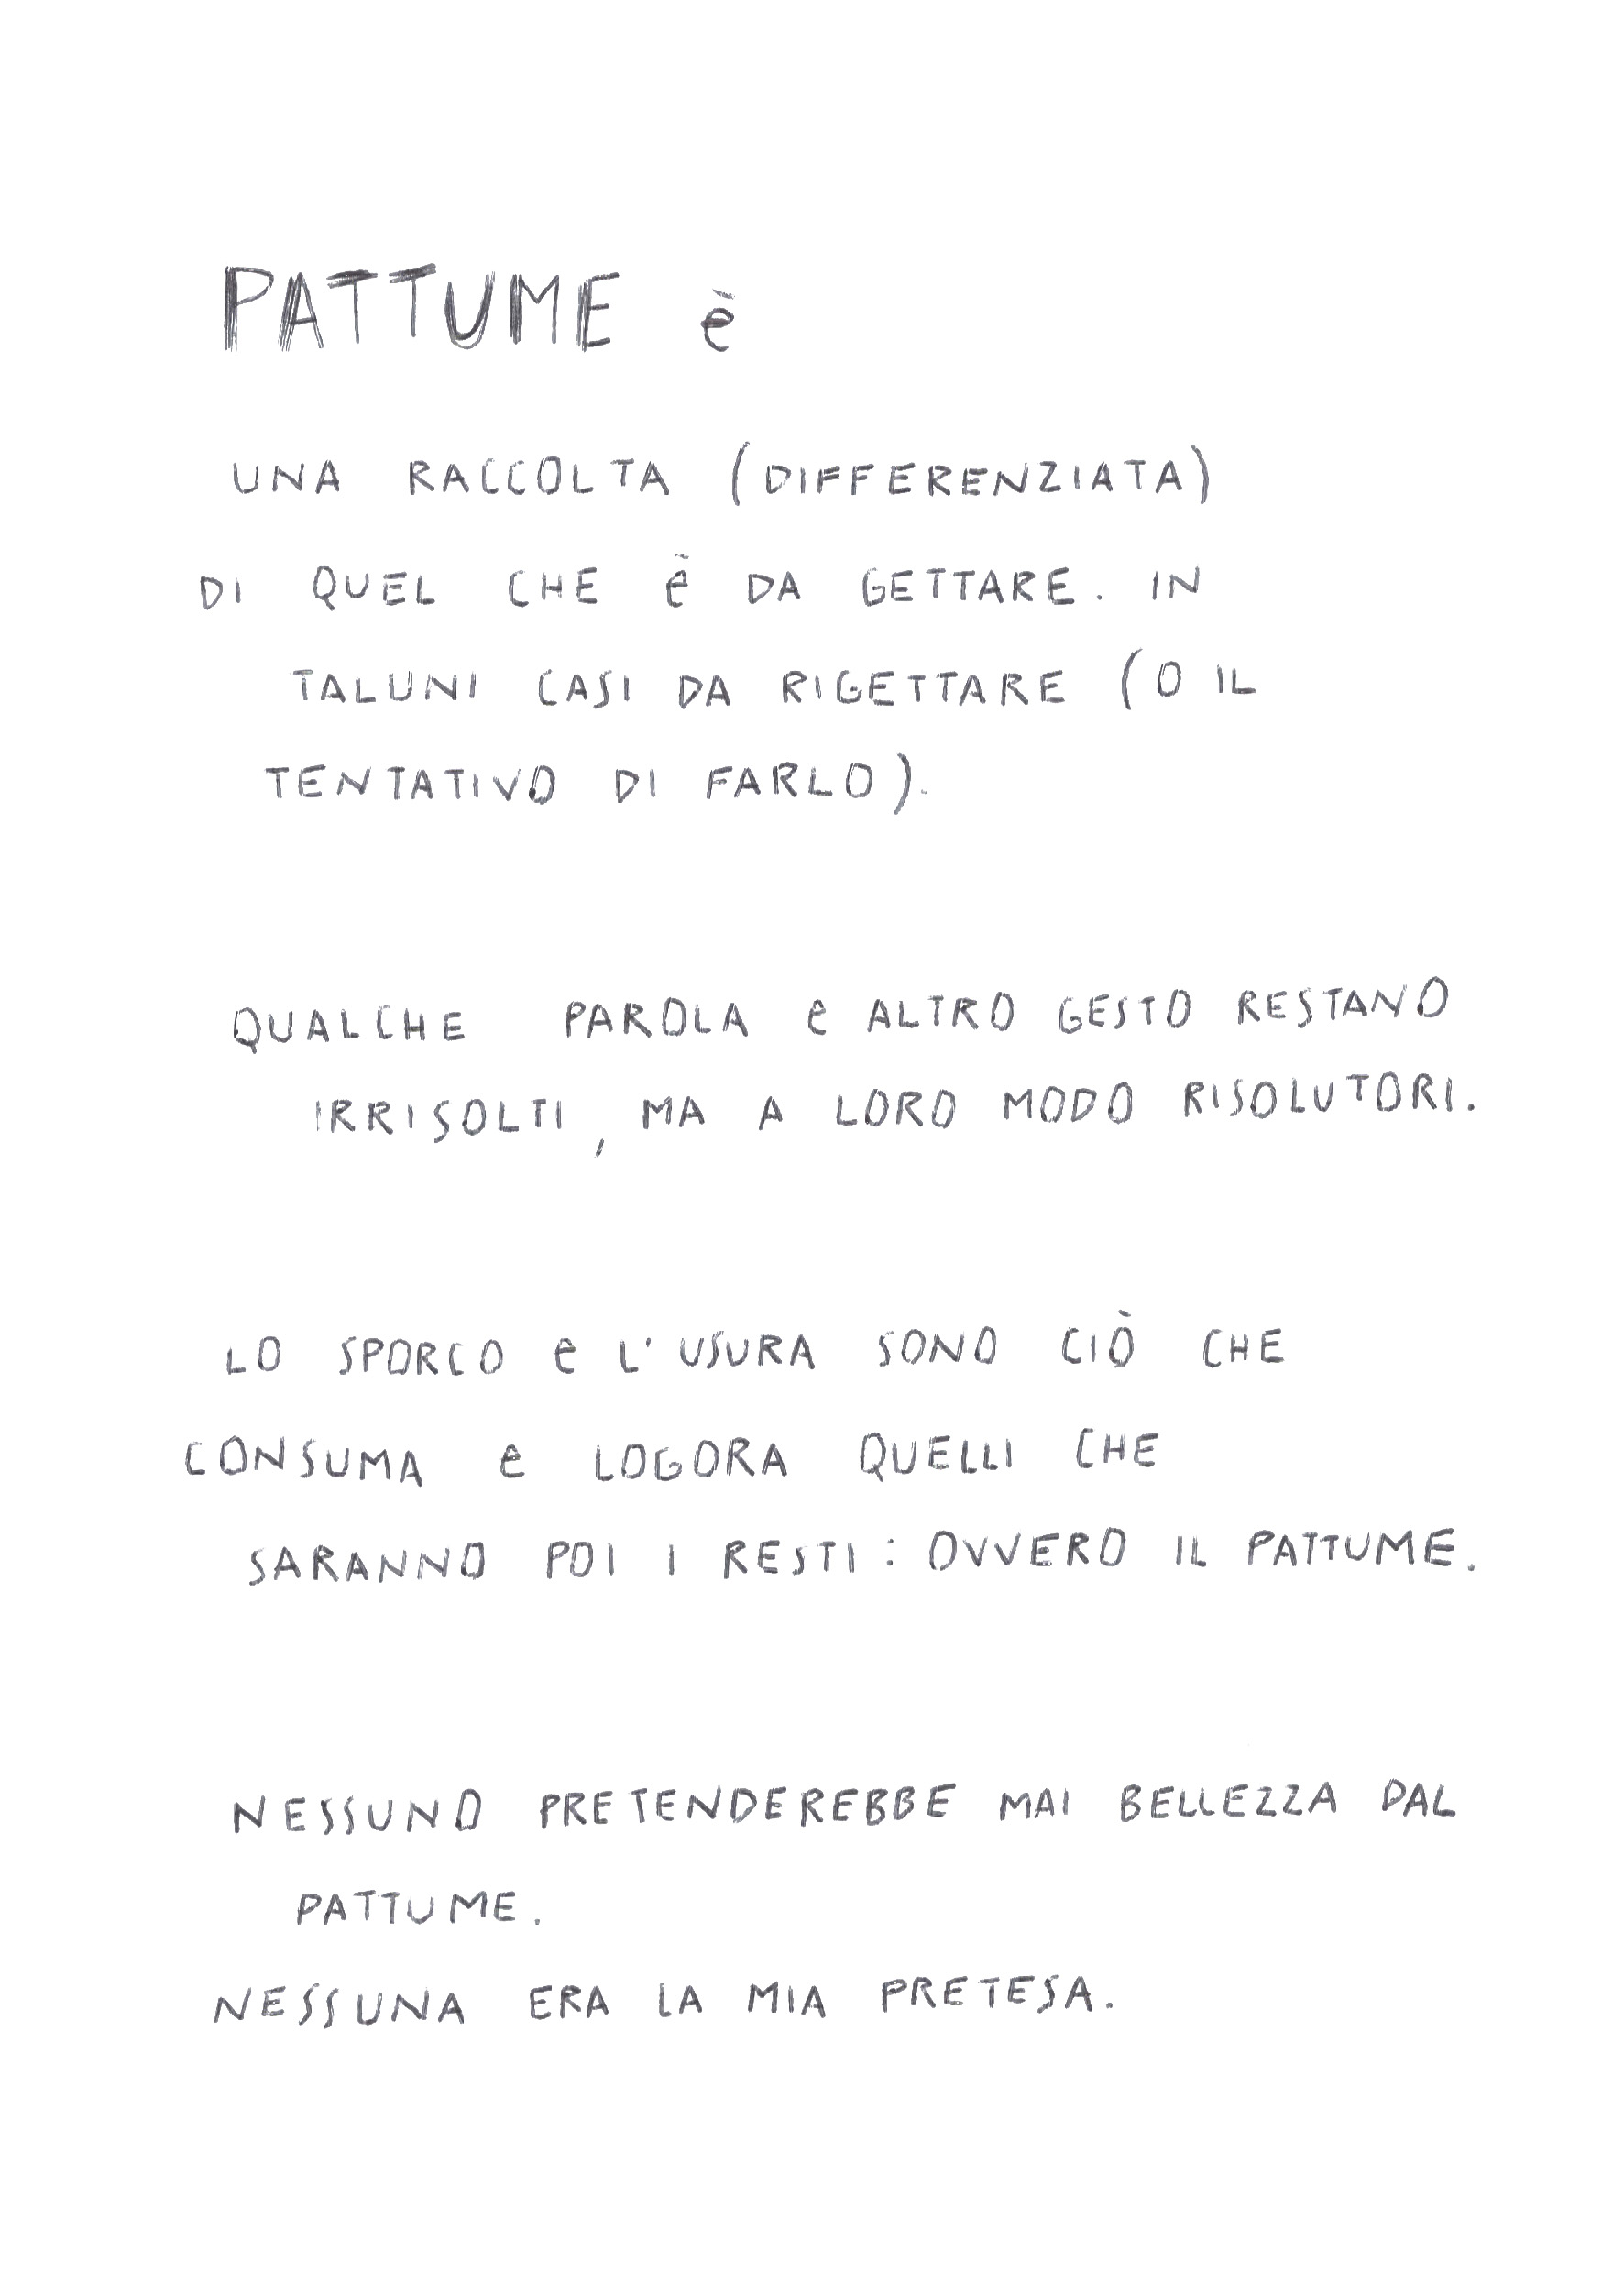 PATTUME è
UNA RACCOLTA (DIFFERENZIATA)
DI QUEL CHE è DA GETTARE. IN
TALUNI CASI DA RIGETTARE (O IL
TENTATIVO DI FARLO).
QUALCHE PAROLA e ALTRO GESTO RESTANO
IRRISOLTI, MA A LORO MODO RISOLUTORI.
LO SPORCO e L'USURA SONO CIÒ CHE
CONSUMA e LOGORA QUELLI CHE
SARANNO POI I RESTI: OVVERO IL PATTUME.
NESSUNO PRETENDEREBBE MAI BELLEZZA DAL
PATTUME.
NESSUNA ERA LA MIA PRETESA.